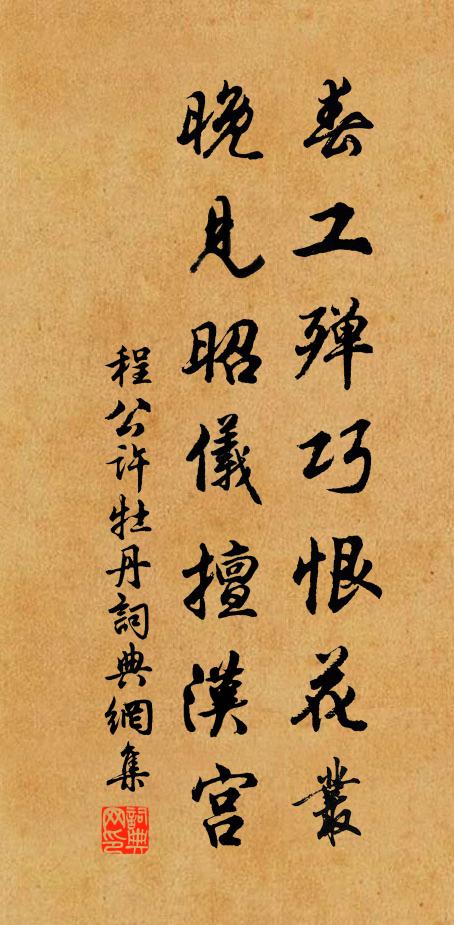 春工殫巧恨花叢
晚見昭儀擅漢宮
程公許牡丹詞典網集
詞典网印